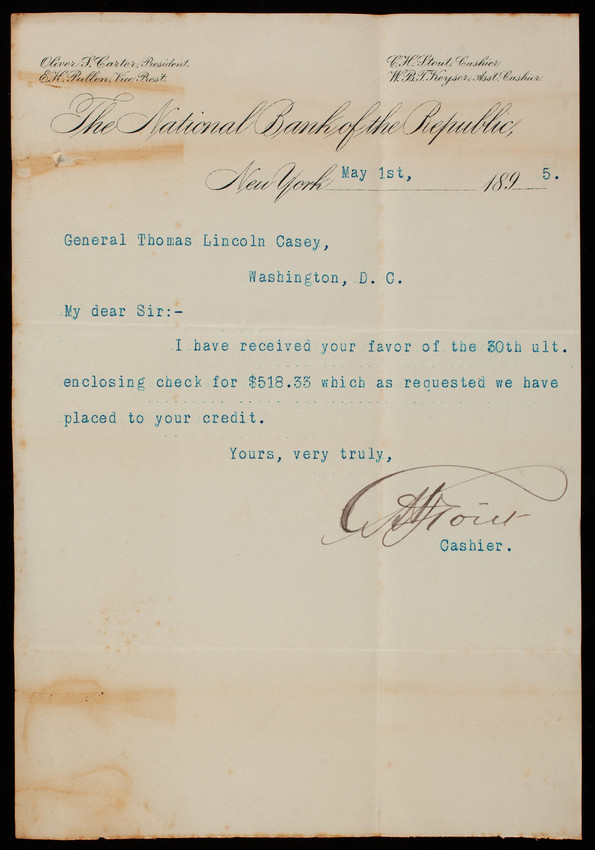 Oliver S. Carter, President.
E.K. Pullen, Vice Prest.
C.H. Stout, Cashier
W.B.T. Keyser, Asst. Cashier.
The National Bank of the Republic,
New York May 1st, 1895.
General Thomas Lincoln Casey,
Washington, D. C.
My dear Sir:-
I have received your favor of the 30th ult.
enclosing check for $518.33 which as requested we have
placed to your credit.
Yours, very truly,
C H Stout
Cashier.